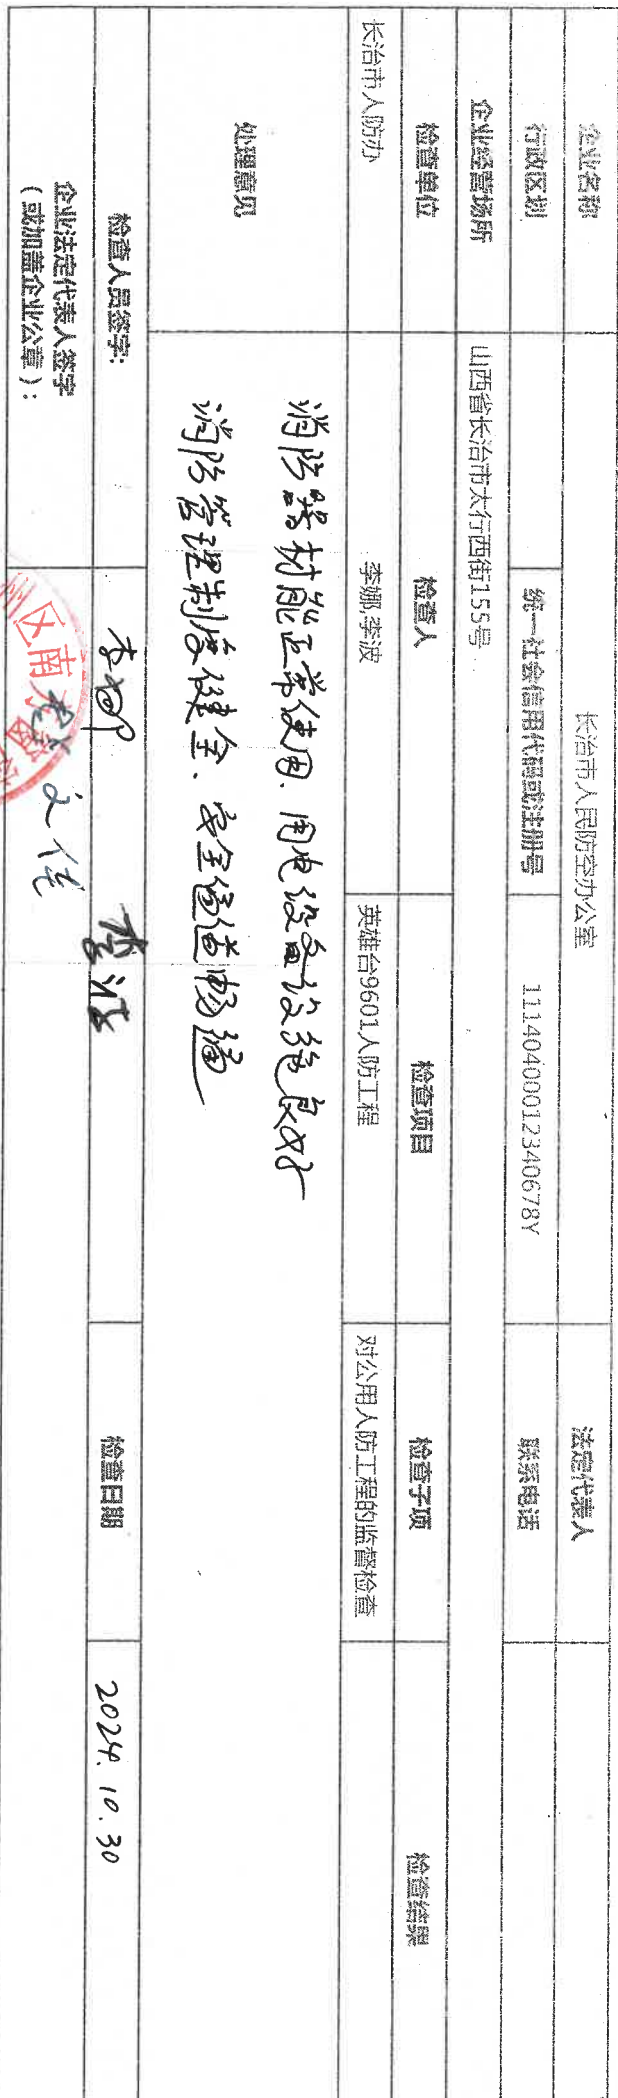 企业名称 长治市人民防空办公室 法定代表人
行政区划 统一社会信用代码或注册号 11140400012340678Y 联系电话
企业经营场所 山西省长治市太行西街155号
检查单位 检查人 检查项目 检查子项 检查结果
长治市人防办 李娜,李波 英雄台9601人防工程 对公用人防工程的监督检查
处理意见
消防器材能正常使用、用电设备设绝良好
消防管理制度健全、安全通道畅通
检查人员签字: 李娜 李波 检查日期 2024.10.30
企业法定代表人签字
(或加盖企业公章):
州区南